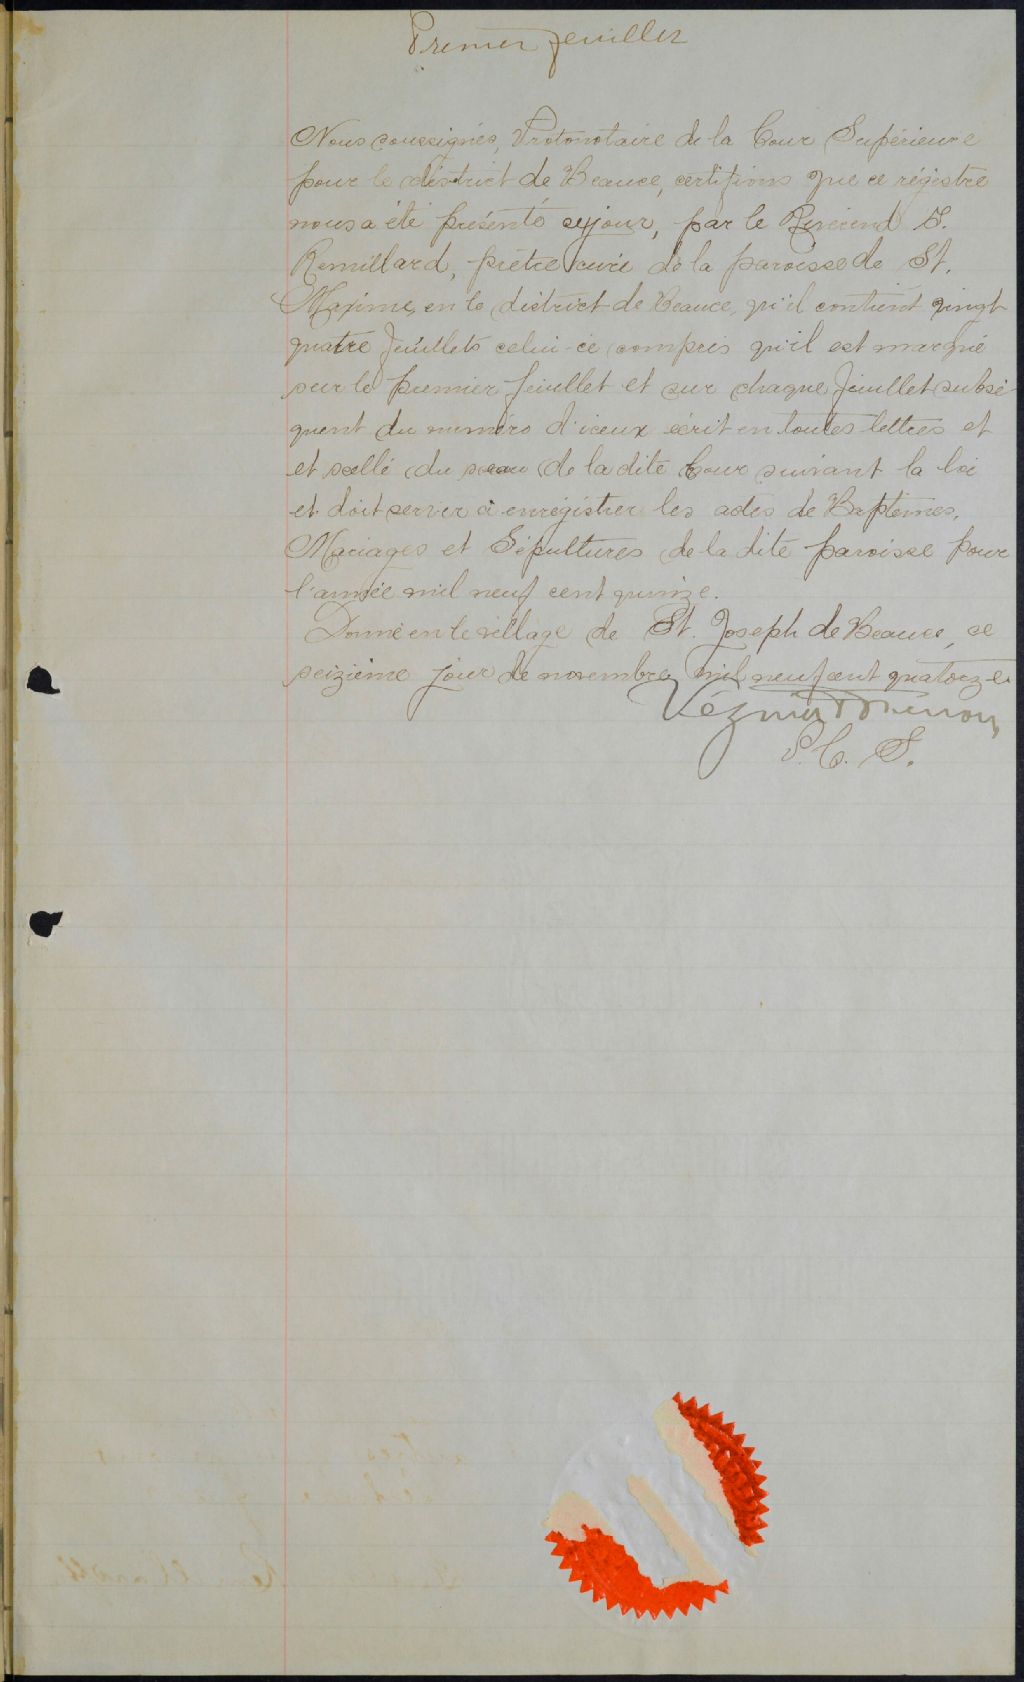 Premier feuillet
Nous soussignés, Protonotaire de la Cour Supérieure
pour le district de Beauce, certifions que ce régistre
nous a été présenté ce jour, par le Révérend S.
Remillard, prêtre curé de la paroisse de St.
Maxime, en le district de Beauce, qu'il contient vingt
quatre feuillets celui-ci compris qu'il est marqué
sur le premier feuillet et sur chaque feuillet subsé-
quent du numéro d'iceux écrit en toutes lettres et
et scellé du sceau de la dite Cour suivant la loi
et doit servir à enregistrer les actes de Baptêmes,
Mariages et Sépultures de la dite paroisse pour
l'année mil neuf cent quinze.
Donné en le village de St. Joseph de Beauce, ce
seizième jour de novembre mil neuf cent quatorze
Vézina
P. C. S.